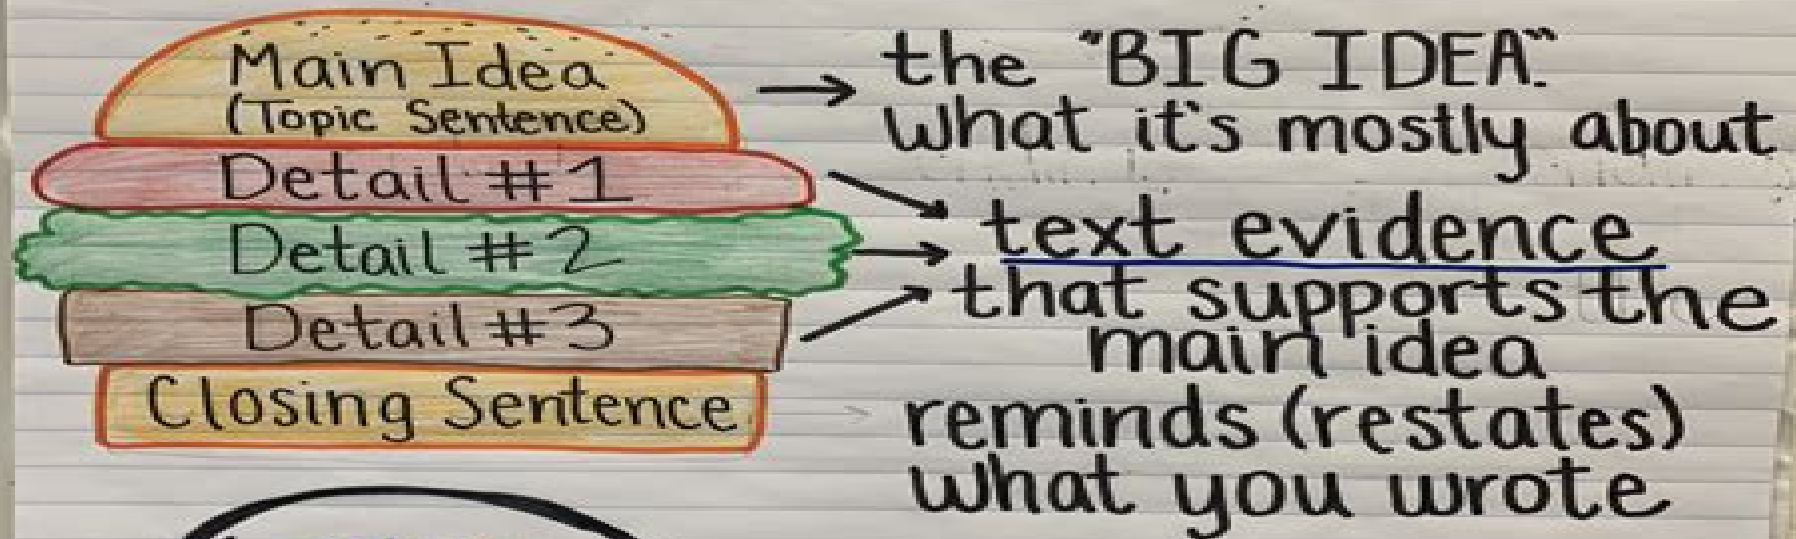 Main Idea
(Topic Sentence)
Detail #1
Detail #2
Detail #3
Closing Sentence
the "BIG IDEA".
What it's mostly about
text evidence
that supports the
main idea
reminds (restates)
what you wrote